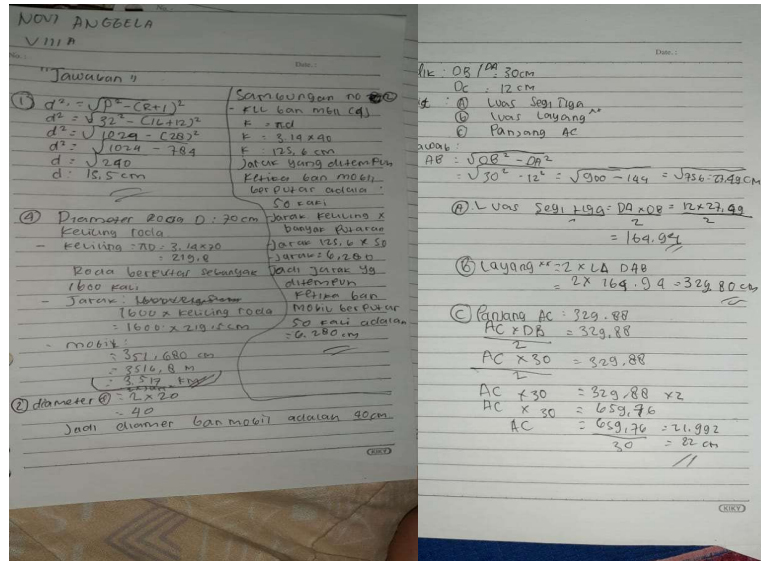 NOVI ANGGELA
VIII A
No.:
Date.:
"Jawaban"
① d² = √P² - (R+1)²
d² = √32² - (16+12)²
d² = √1024 - (28)²
d² = √1024 - 784
d = √240
d : 15,5 cm
④ Diameter Roda D : 70 cm
Keliling roda
- Keliling = πD = 3.14 x 70
= 219,8
Roda berputar sebanyak
1600 kali
- Jarak :
1600 x keliling roda
= 1600 x 219,8 cm
- mobil :
= 351,680 cm
= 3516,8 M
= 3.517 KM
② diameter = 2 x 20
= 40
Jadi diamer ban mobil adalah 40 cm
Sambungan no ②
- KLL ban mobil
K = πd
K : 3.14 x 40
K : 125,6 cm
Jarak yang ditempuh
Ketika ban mobil
berputar adala
50 kali
- Jarak = Keliling x
banyak putaran
- Jarak 125,6 x 50
- Jarak = 6,280
Jadi jarak yg
ditempuh
Ketika ban
mobil berputar
50 kali adalah
= 6.280 cm
KIKY
Date.:
lik : OB / DA : 30 cm
OC : 12 cm
Ⓐ Luas Segi Tiga
Ⓑ Luas Layang"
Ⓒ Panjang AC
awab :
AB : √OB² - DA²
= √30² - 12² = √900 - 144 = √756 = 27,49 CM
Ⓐ. Luas Segi tiga = DA x OB = 12 x 27,49
2 2
= 164.94
Ⓑ Layang" = 2 x LΔ DAB
= 2 x 164.94 = 329,80 cm
Ⓒ Panjang AC : 329.88
AC x DB = 329,88
2
AC x 30 = 329.88
2
AC x 30 = 329.88 x 2
AC x 30 = 659,76
AC = 659,76 = 21.992
30 = 22 cm
KIKY